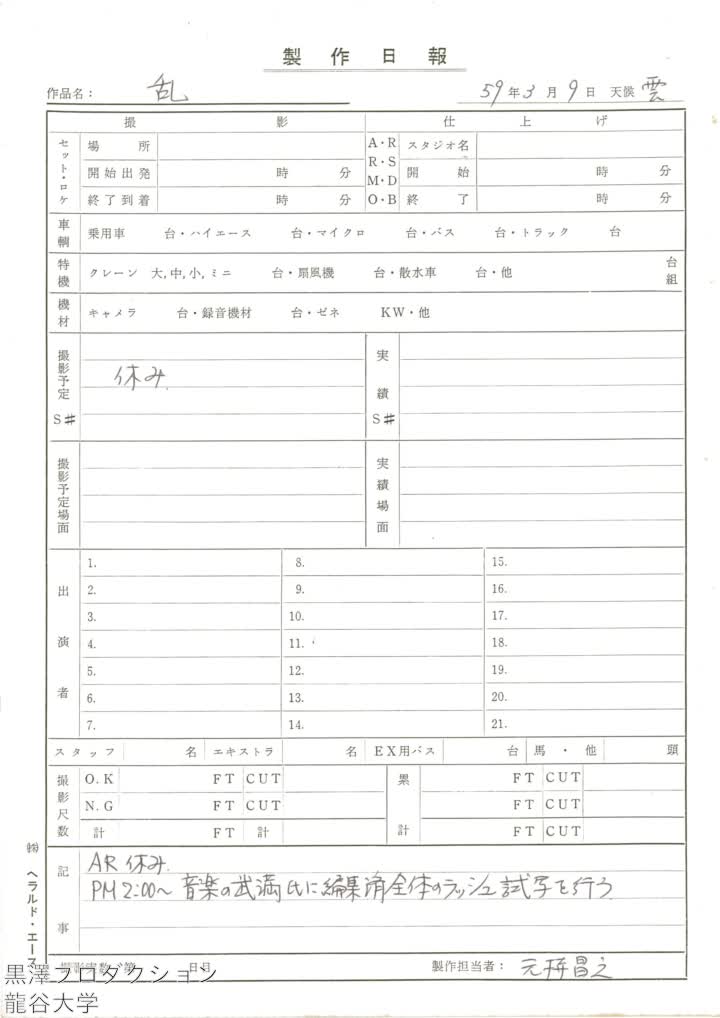 製作日報
作品名: 乱
59年3月9日 天候 雲
撮影
仕上げ
セット・ロケ
場所
開始出発 時 分
終了到着 時 分
A・R
R・S
M・D
O・B
スタジオ名
開始 時 分
終了 時 分
車輌 乗用車 台・ハイエース 台・マイクロ 台・バス 台・トラック 台
特機 クレーン 大,中,小,ミニ 台・扇風機 台・散水車 台・他 台組
機材 キャメラ 台・録音機材 台・ゼネ KW・他
撮影予定 S# 休み.
実績 S#
撮影予定場面
実績場面
出演者
1. 8. 15.
2. 9. 16.
3. 10. 17.
4. 11. 18.
5. 12. 19.
6. 13. 20.
7. 14. 21.
スタッフ 名 エキストラ 名 EX用バス 台 馬・他 頭
撮影尺数
O.K FT CUT
N.G FT CUT
計 FT 計
累計
FT CUT
FT CUT
FT CUT
記事
AR 休み.
PM 2:00〜 音楽の武満氏に編集済全体のラッシュ試写を行う
撮影実数 第 日目
製作担当者: 元持昌之
㈱ ヘラルド・エース
黒澤プロダクション
龍谷大学